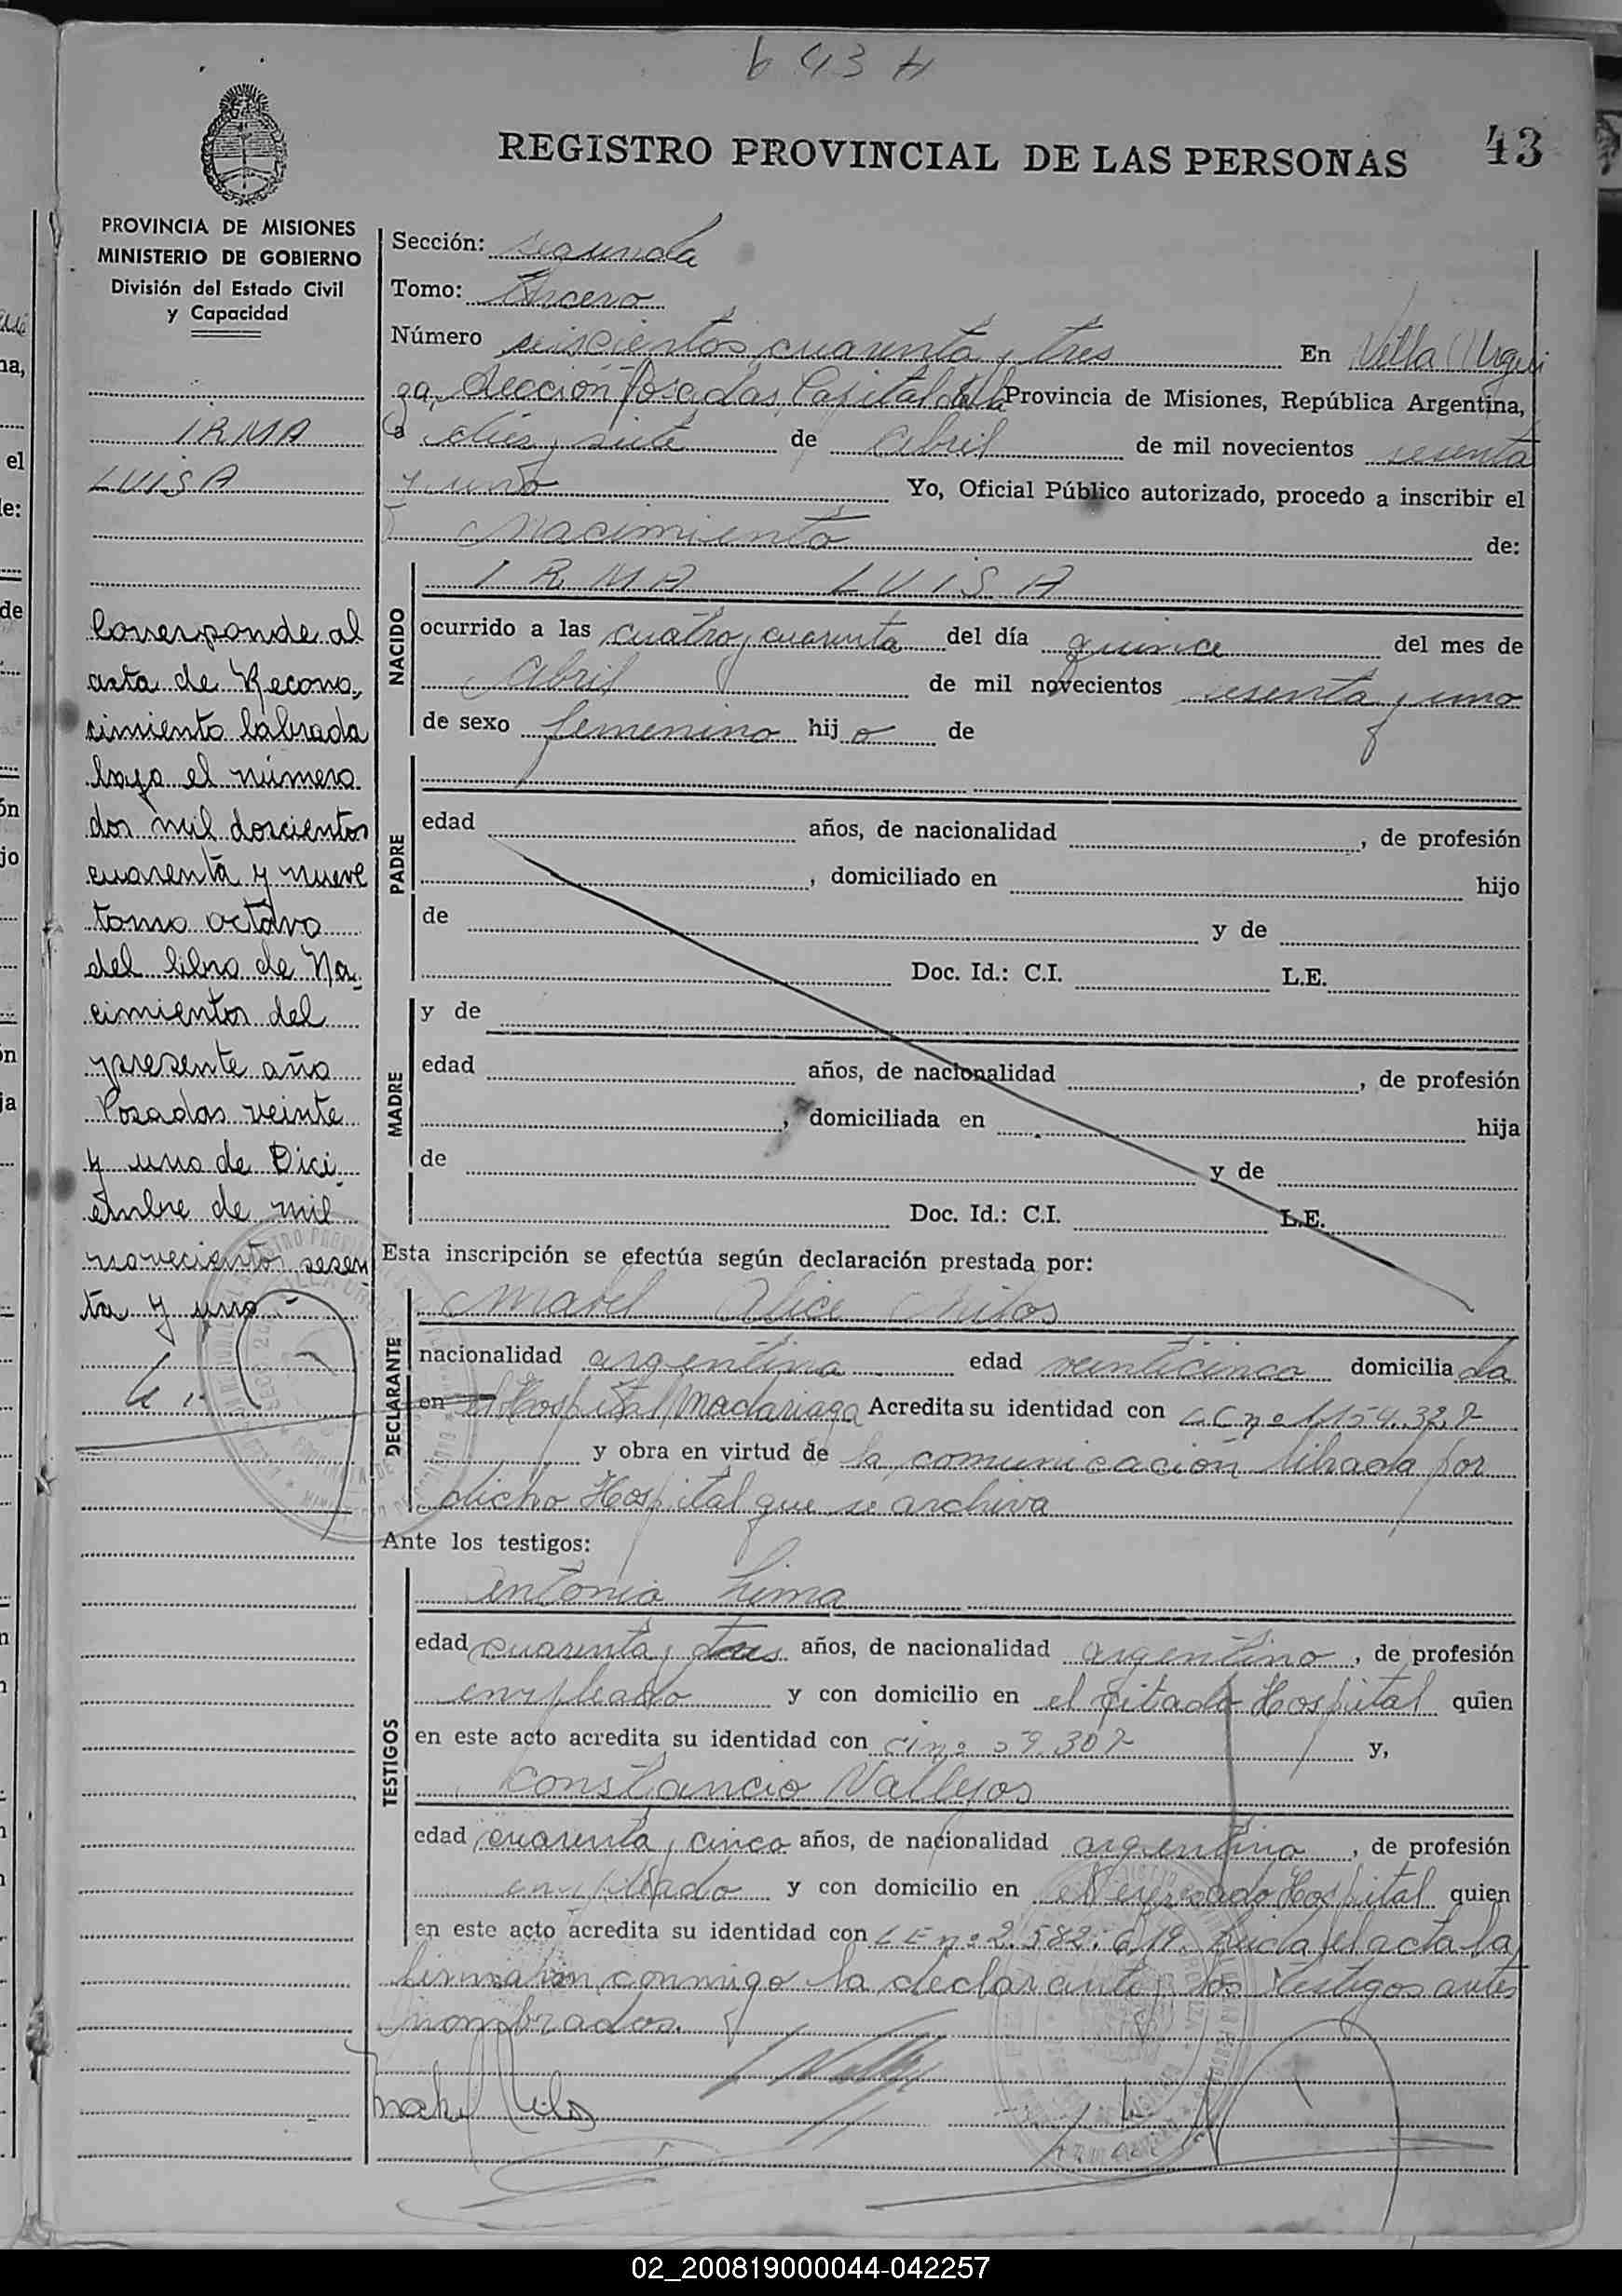 643 H
REGISTRO PROVINCIAL DE LAS PERSONAS
43
PROVINCIA DE MISIONES
MINISTERIO DE GOBIERNO
División del Estado Civil
y Capacidad
IRMA
LUISA
Corresponde al
acta de Recono-
cimiento labrada
bajo el número
dos mil doscientos
cuarenta y nueve
tomo octavo
del libro de Na-
cimientos del
presente año
Posadas veinte
y uno de Dici-
embre de mil
novecientos sesen
ta y uno-
Sección: segunda
Tomo: tercero
Número seiscientos cuarenta y tres En Villa Urqui
za, Sección Posadas, Capital de la Provincia de Misiones, República Argentina,
a dies y siete de Abril de mil novecientos sesenta
y uno Yo, Oficial Público autorizado, procedo a inscribir el
Nacimiento de:
NACIDO
IRMA LUISA
ocurrido a las cuatro y cuarenta del día quince del mes de
Abril de mil novecientos sesenta y uno
de sexo femenino hij a de
PADRE
edad años, de nacionalidad , de profesión
, domiciliado en hijo
de y de
Doc. Id.: C.I. L.E.
MADRE
y de
edad años, de nacionalidad , de profesión
, domiciliada en hija
de y de
Doc. Id.: C.I. L.E.
Esta inscripción se efectúa según declaración prestada por:
DECLARANTE
Mabel Alice
nacionalidad argentina edad veinticinco domicilia da
en el Hospital Madariaga Acredita su identidad con LC nº 1.154.327
y obra en virtud de la comunicación librada por
dicho Hospital que se archiva
Ante los testigos:
TESTIGOS
Antonio Lima
edad cuarenta y tres años, de nacionalidad argentino, de profesión
empleado y con domicilio en el citado Hospital quien
en este acto acredita su identidad con ci nº 29.307 y,
Constancio Vallejos
edad cuarenta y cinco años, de nacionalidad argentino, de profesión
empleado y con domicilio en el expresado Hospital quien
en este acto acredita su identidad con LE nº 2.582.019. Leida el acta la
firmaron conmigo la declarante y los testigos antes
nombrados.
02_200819000044-042257